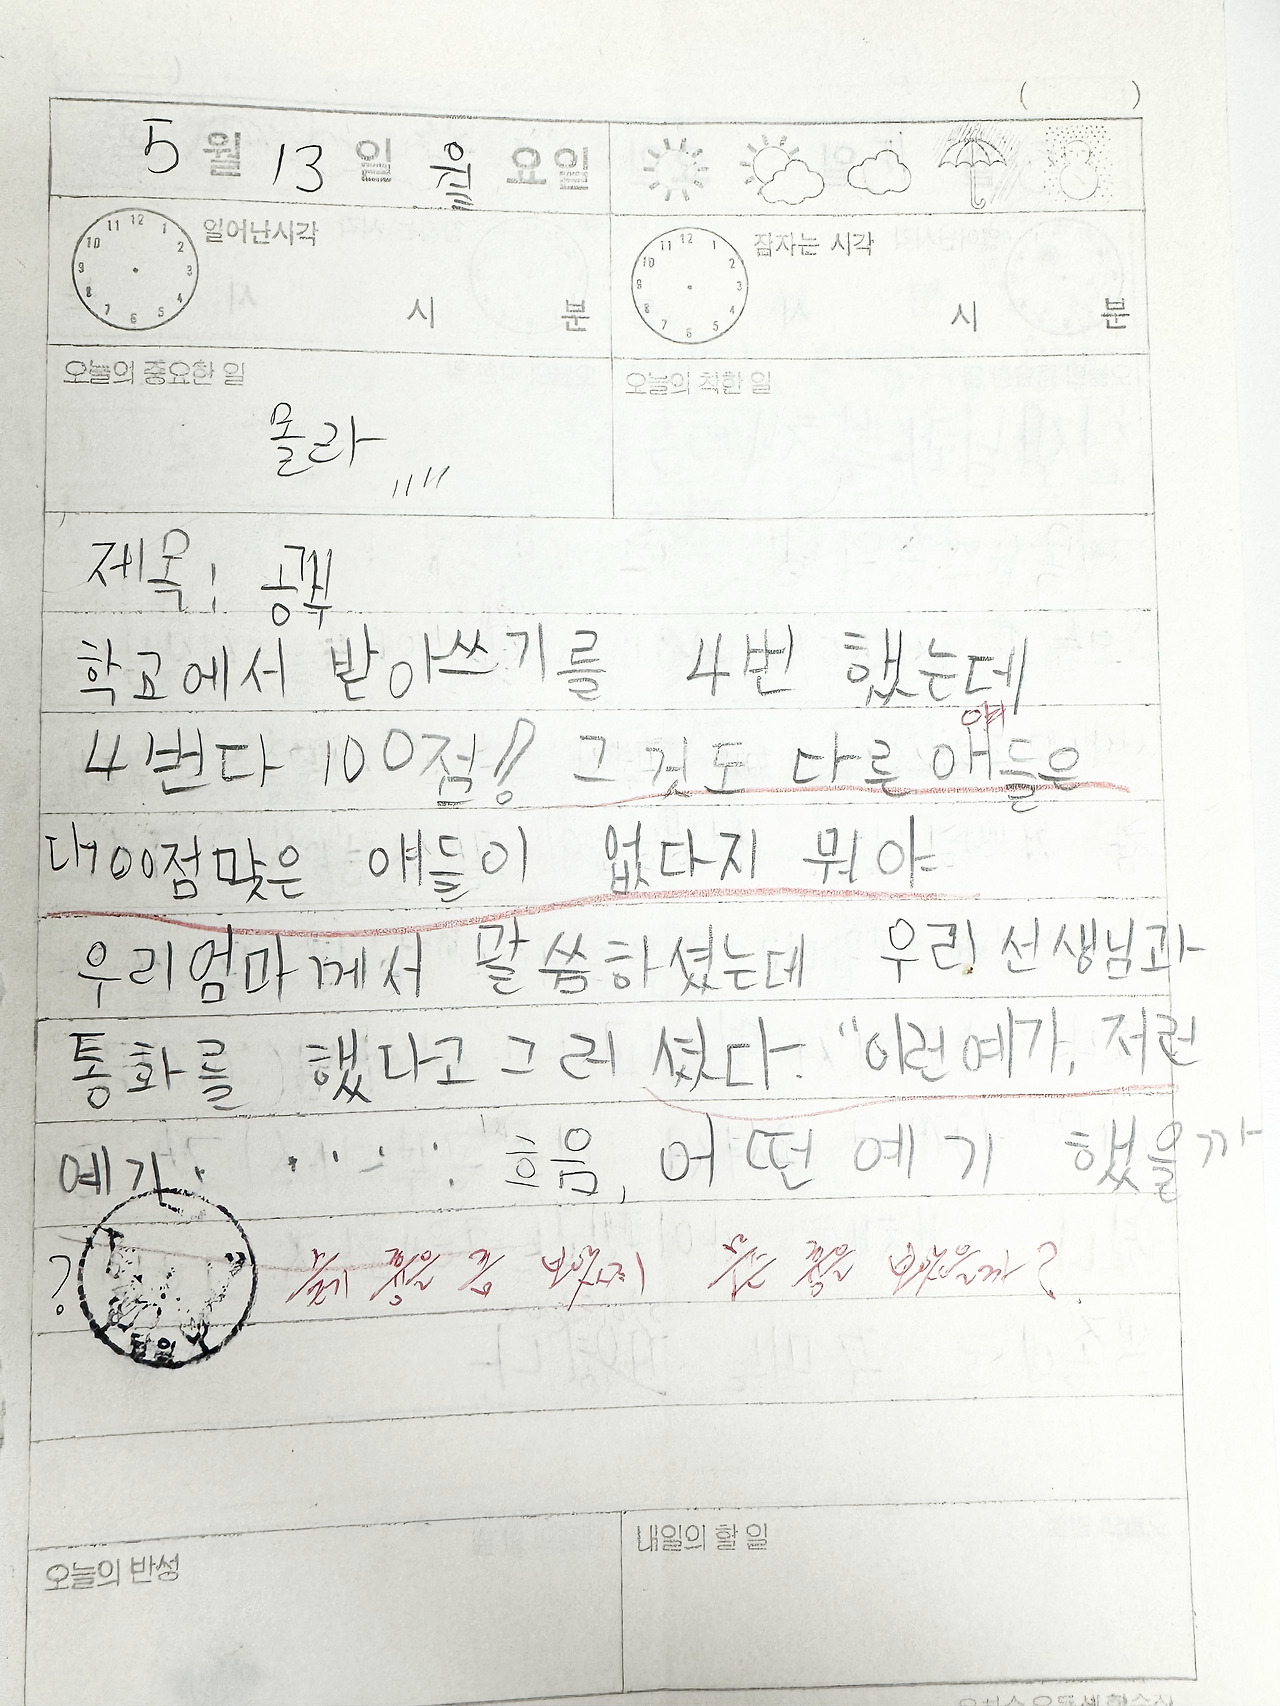 ( )
5월 13일 월요일
일어난시각 12 1 2 3 4 5 6 7 8 9 10 11 시 분
잠자는 시각 12 1 2 3 4 5 6 7 8 9 10 11 시 분
오늘의 중요한 일
오늘의 착한 일
몰라
제목:
학교에서 받아쓰기를 4번 했는데
얘
4번다 100점! 그것도 다른 애들은
다100점맞은 얘들이 없다지 뭐야
우리엄마께서 말씀하셨는데 우리선생님과
통화를 했다고 그러셨다. "이런예기, 저런
예기. ..... 흐음, 어떤예기 했을까
?
오늘의 반성
내일의 할 일